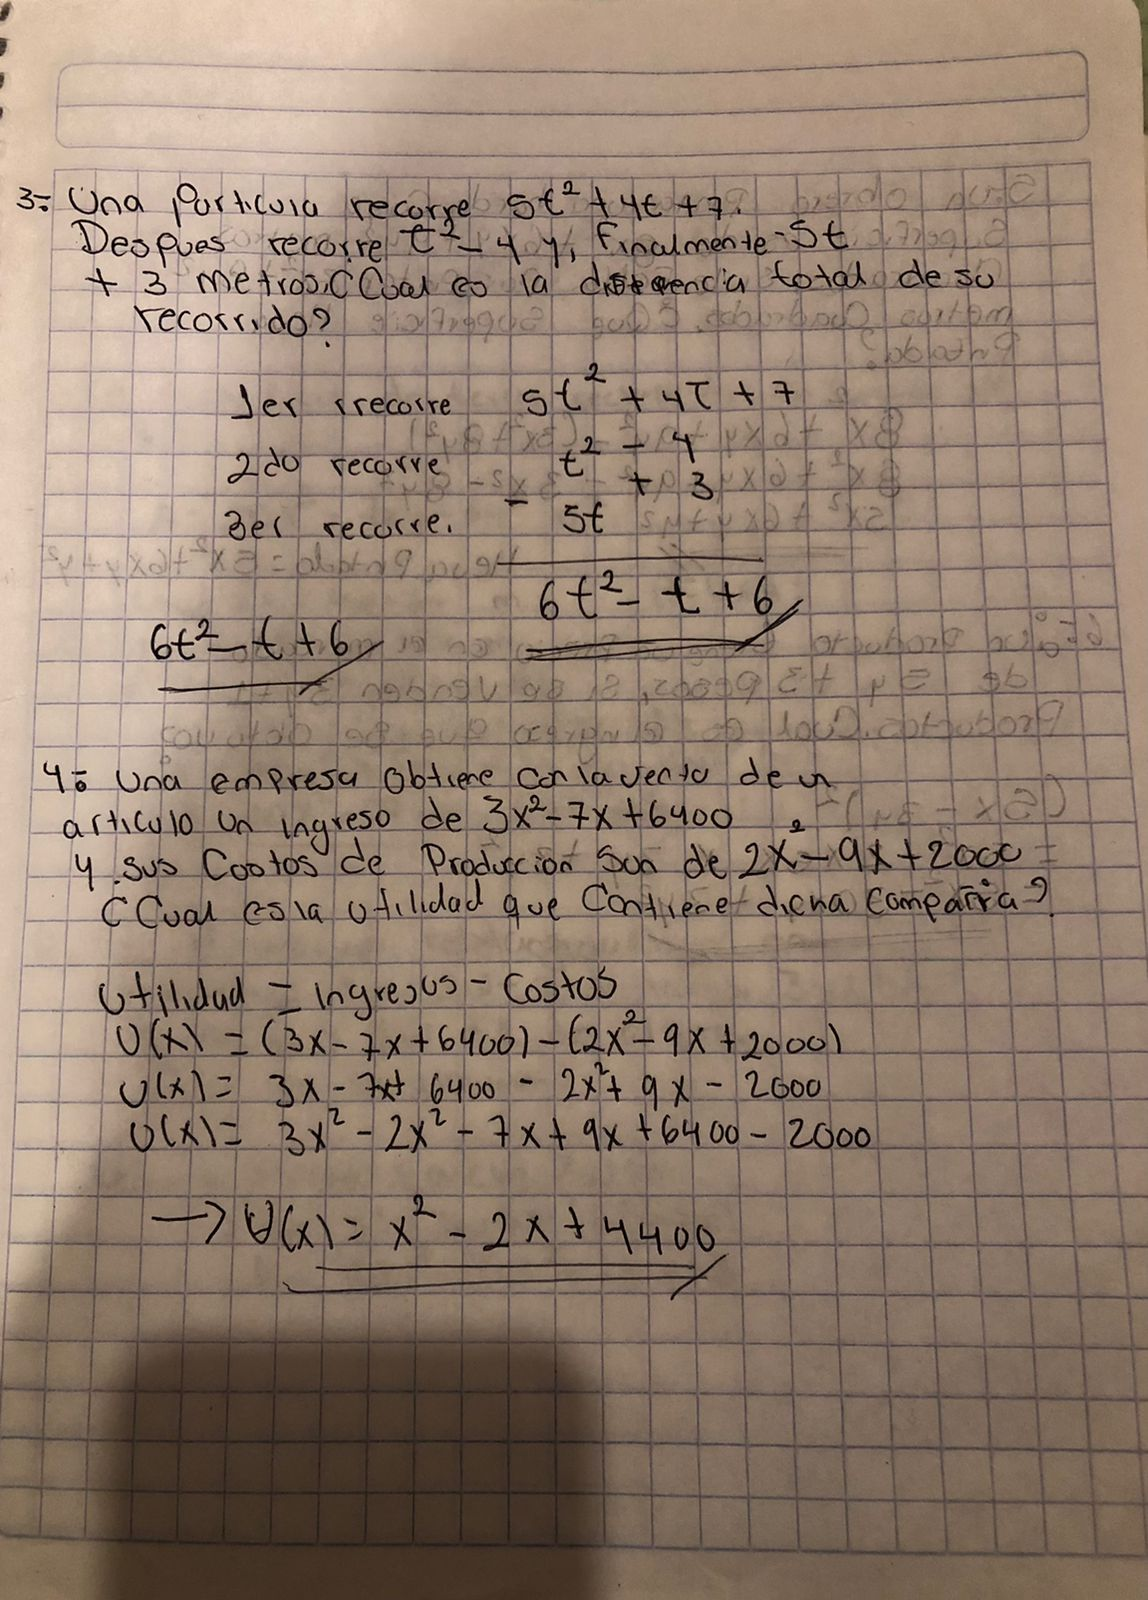 3: Una Particula recorre 5t² + 4t + 7.
Despues recorre t² - 4 y, Finalmente -5t
+ 3 metros. ¿Cual es la distencia total de su
recorrido?
1er rrecorre 5t² + 4t + 7
2do recorre t² - 4
3er recorre. - 5t + 3
6t² - t + 6
6t² - t + 6
4: Una empresa obtiene con la venta de un
articulo un ingreso de 3x² - 7x + 6400
y sus Costos de Produccion Son de 2x² - 9x + 2000
¿Cual es la utilidad que Contiene dicha Compañia?
Utilidad = ingresos - Costos
U(x) = (3x - 7x + 6400) - (2x² - 9x + 2000)
U(x) = 3x - 7x + 6400 - 2x² + 9x - 2000
U(x) = 3x² - 2x² - 7x + 9x + 6400 - 2000
→ U(x) = x² - 2x + 4400